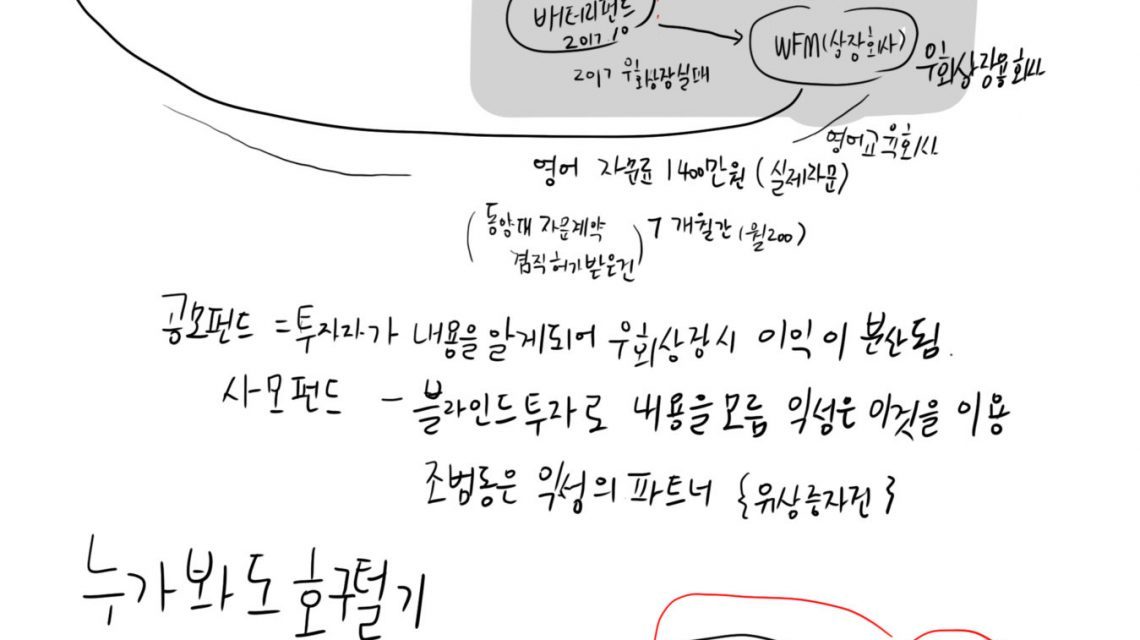 배터리펀드
2017 10
WFM(상장회사)
우회상장용회사
2017 우회상장실패
영어교육회사
영어 자문료 1400만원 (실제자문)
(동양대 자문계약
겸직허가받은건)
7 개월간 (월200)
공모펀드 = 투자자가 내용을알게되어 우회상장시 이익이 분산됨.
사모펀드 - 블라인드투자로 내용을모름 익성은 이것을 이용
조범동은 익성의 파트너 {유상증자건}
누가봐도호구털기